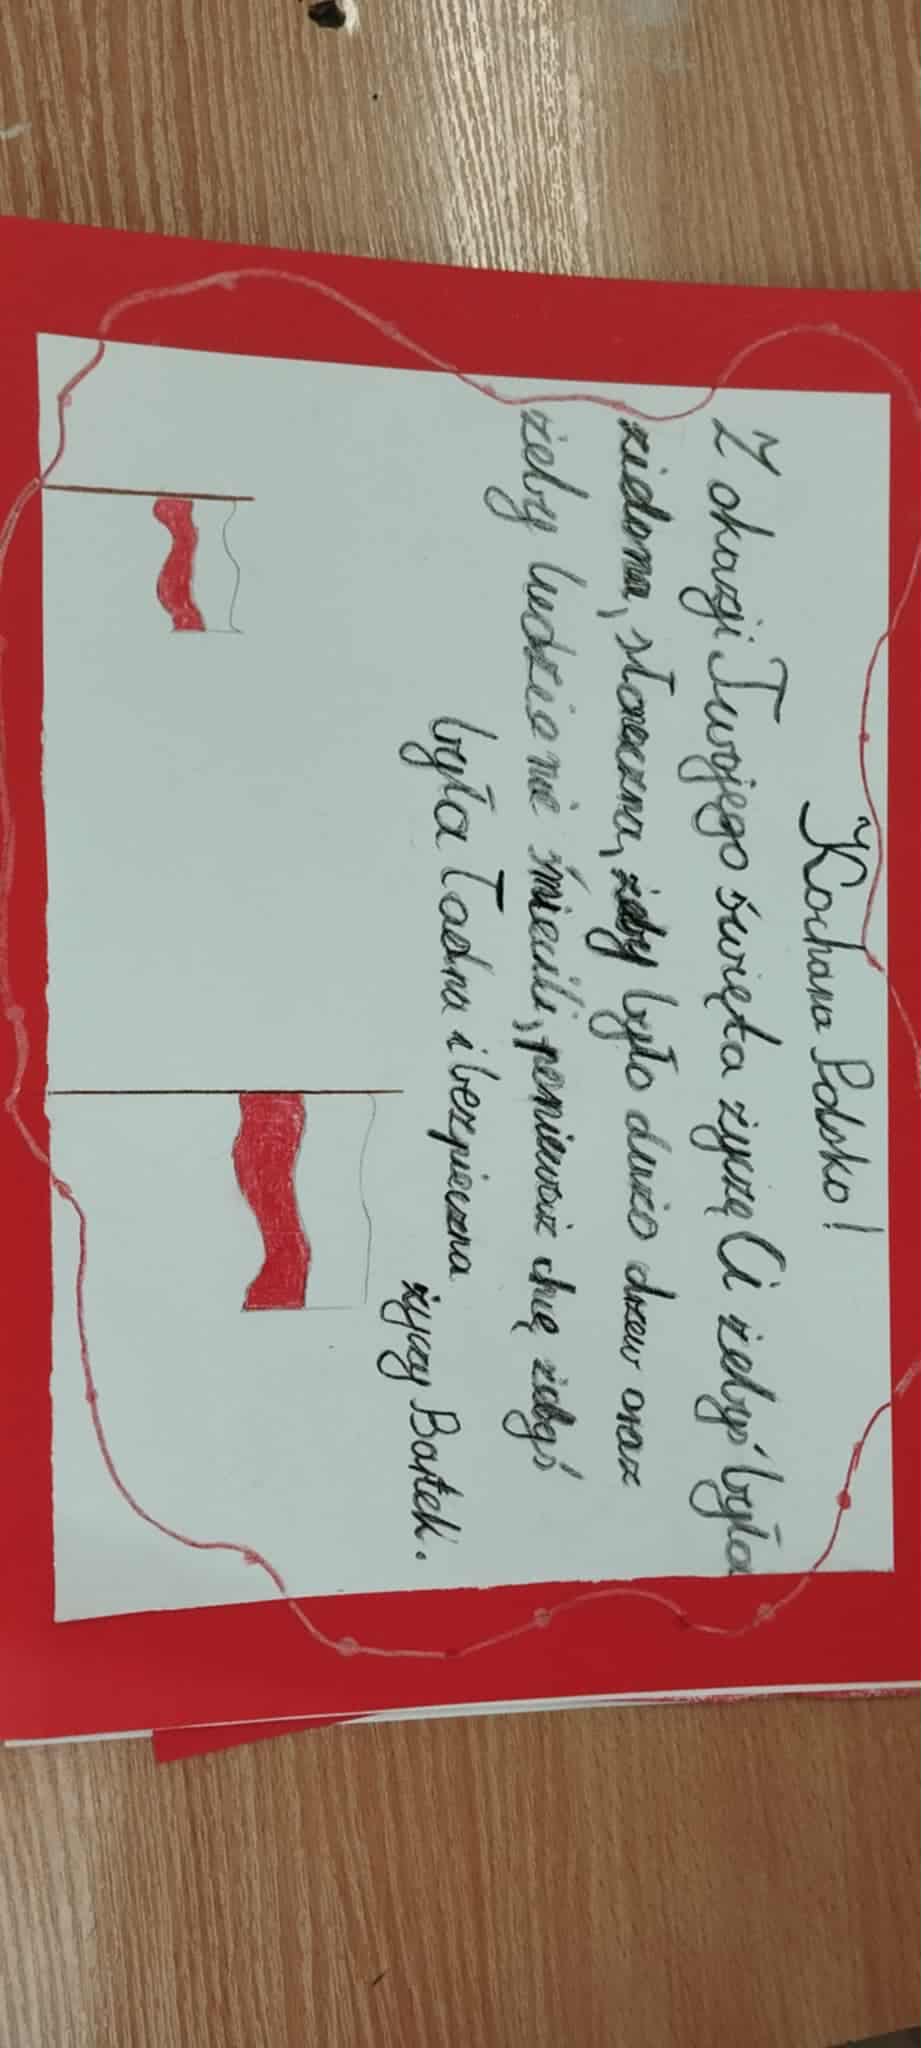 Kochana Polsko!
Z okazji Twojego święta życzę Ci żebyś była
zielona, słoneczna, żeby było dużo drzew oraz
żeby ludzie nie śmiecili, ponieważ chcę żebyś
była ładna i bezpieczna
życzy Bartek.